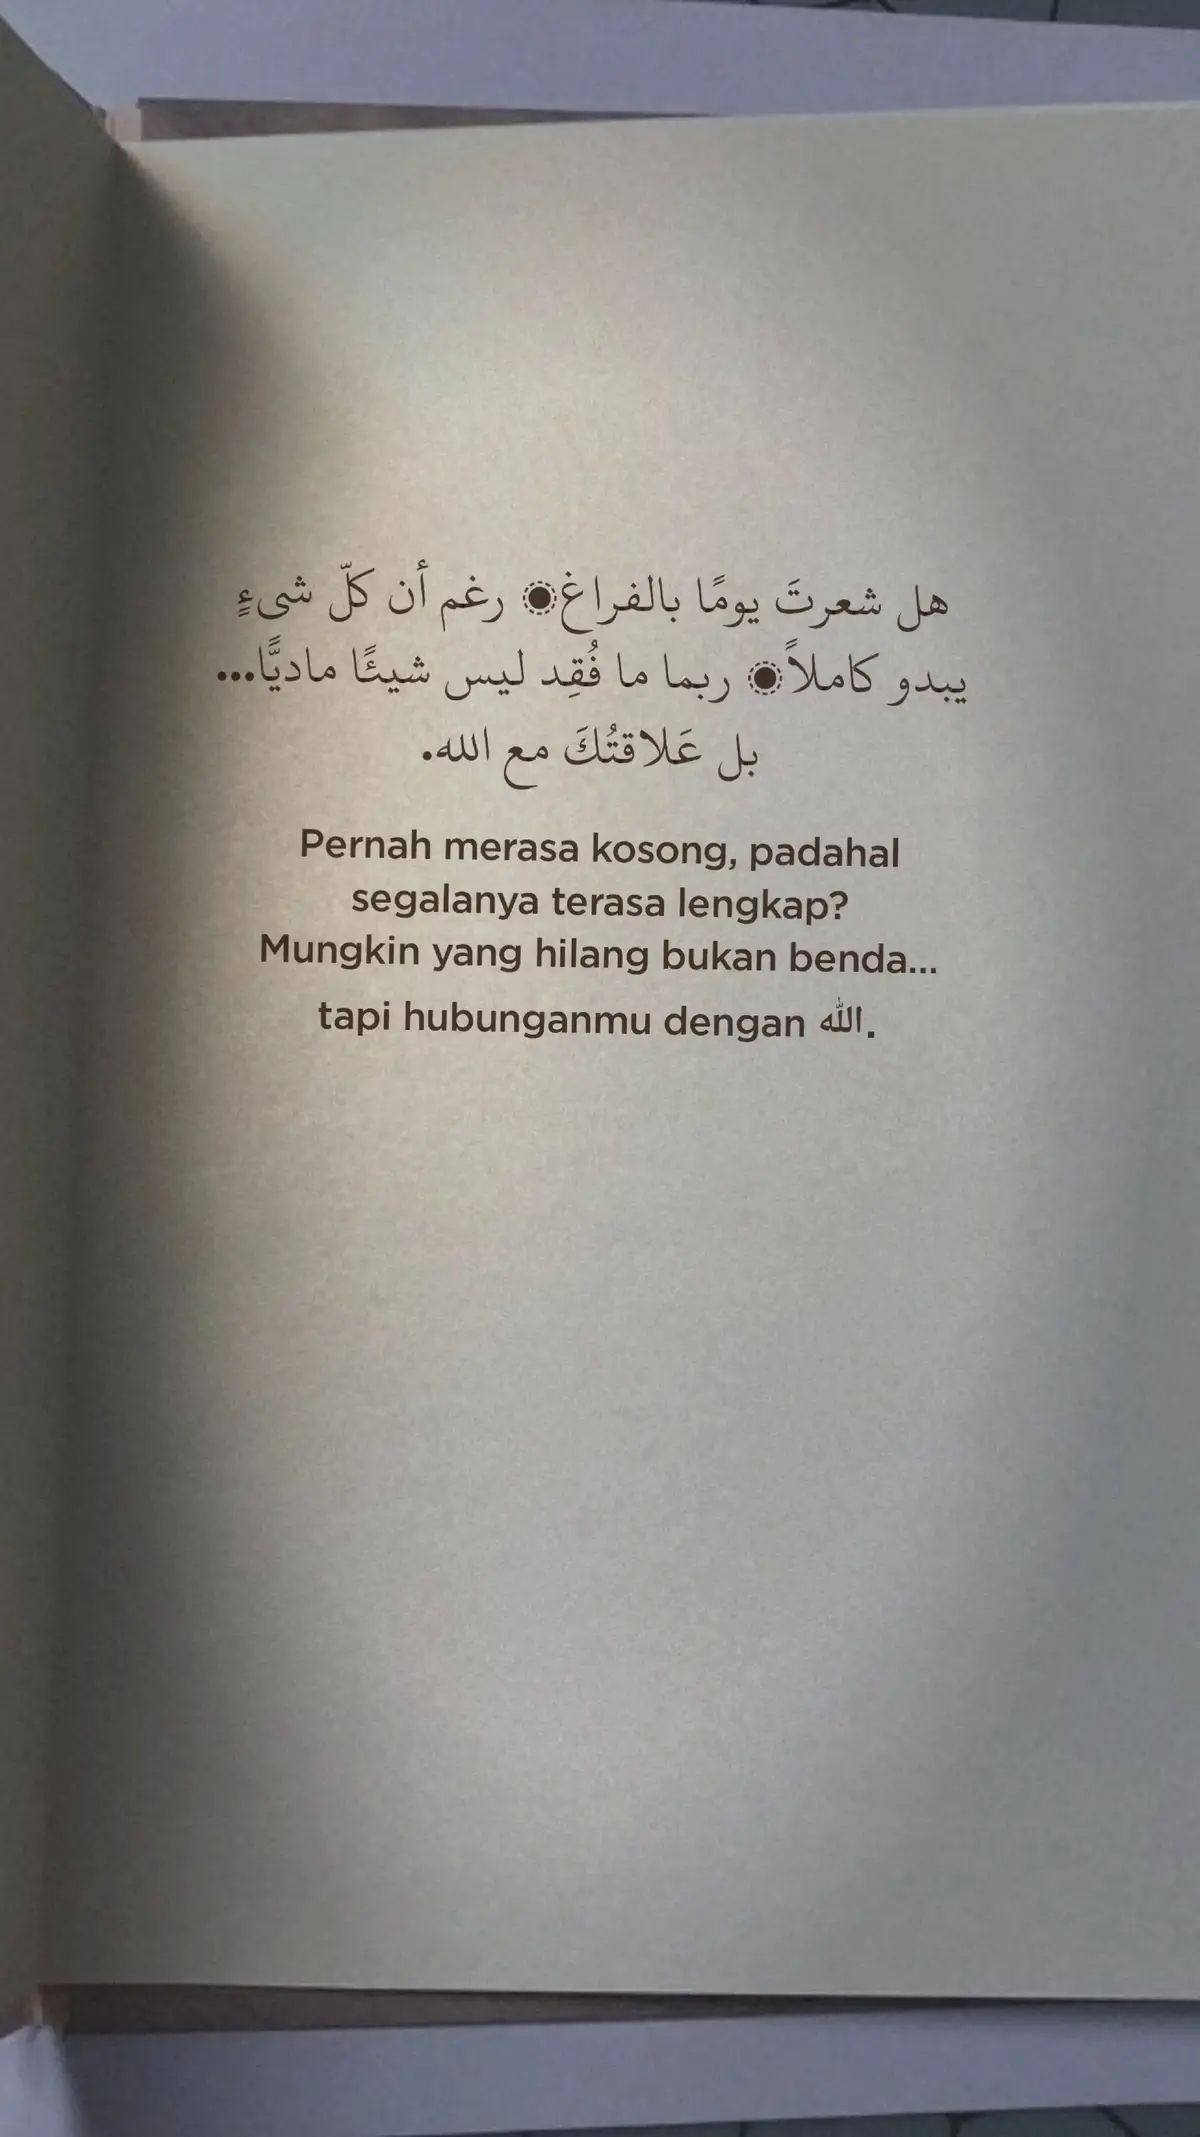 هل شعرتَ يومًا بالفراغ۝ رغم أن كلّ شىءٍ
يبدو كاملاً۝ ربما ما فُقِد ليس شيئًا ماديًّا...
بل عَلاقتُكَ مع الله.
Pernah merasa kosong, padahal
segalanya terasa lengkap?
Mungkin yang hilang bukan benda...
tapi hubunganmu dengan الله.